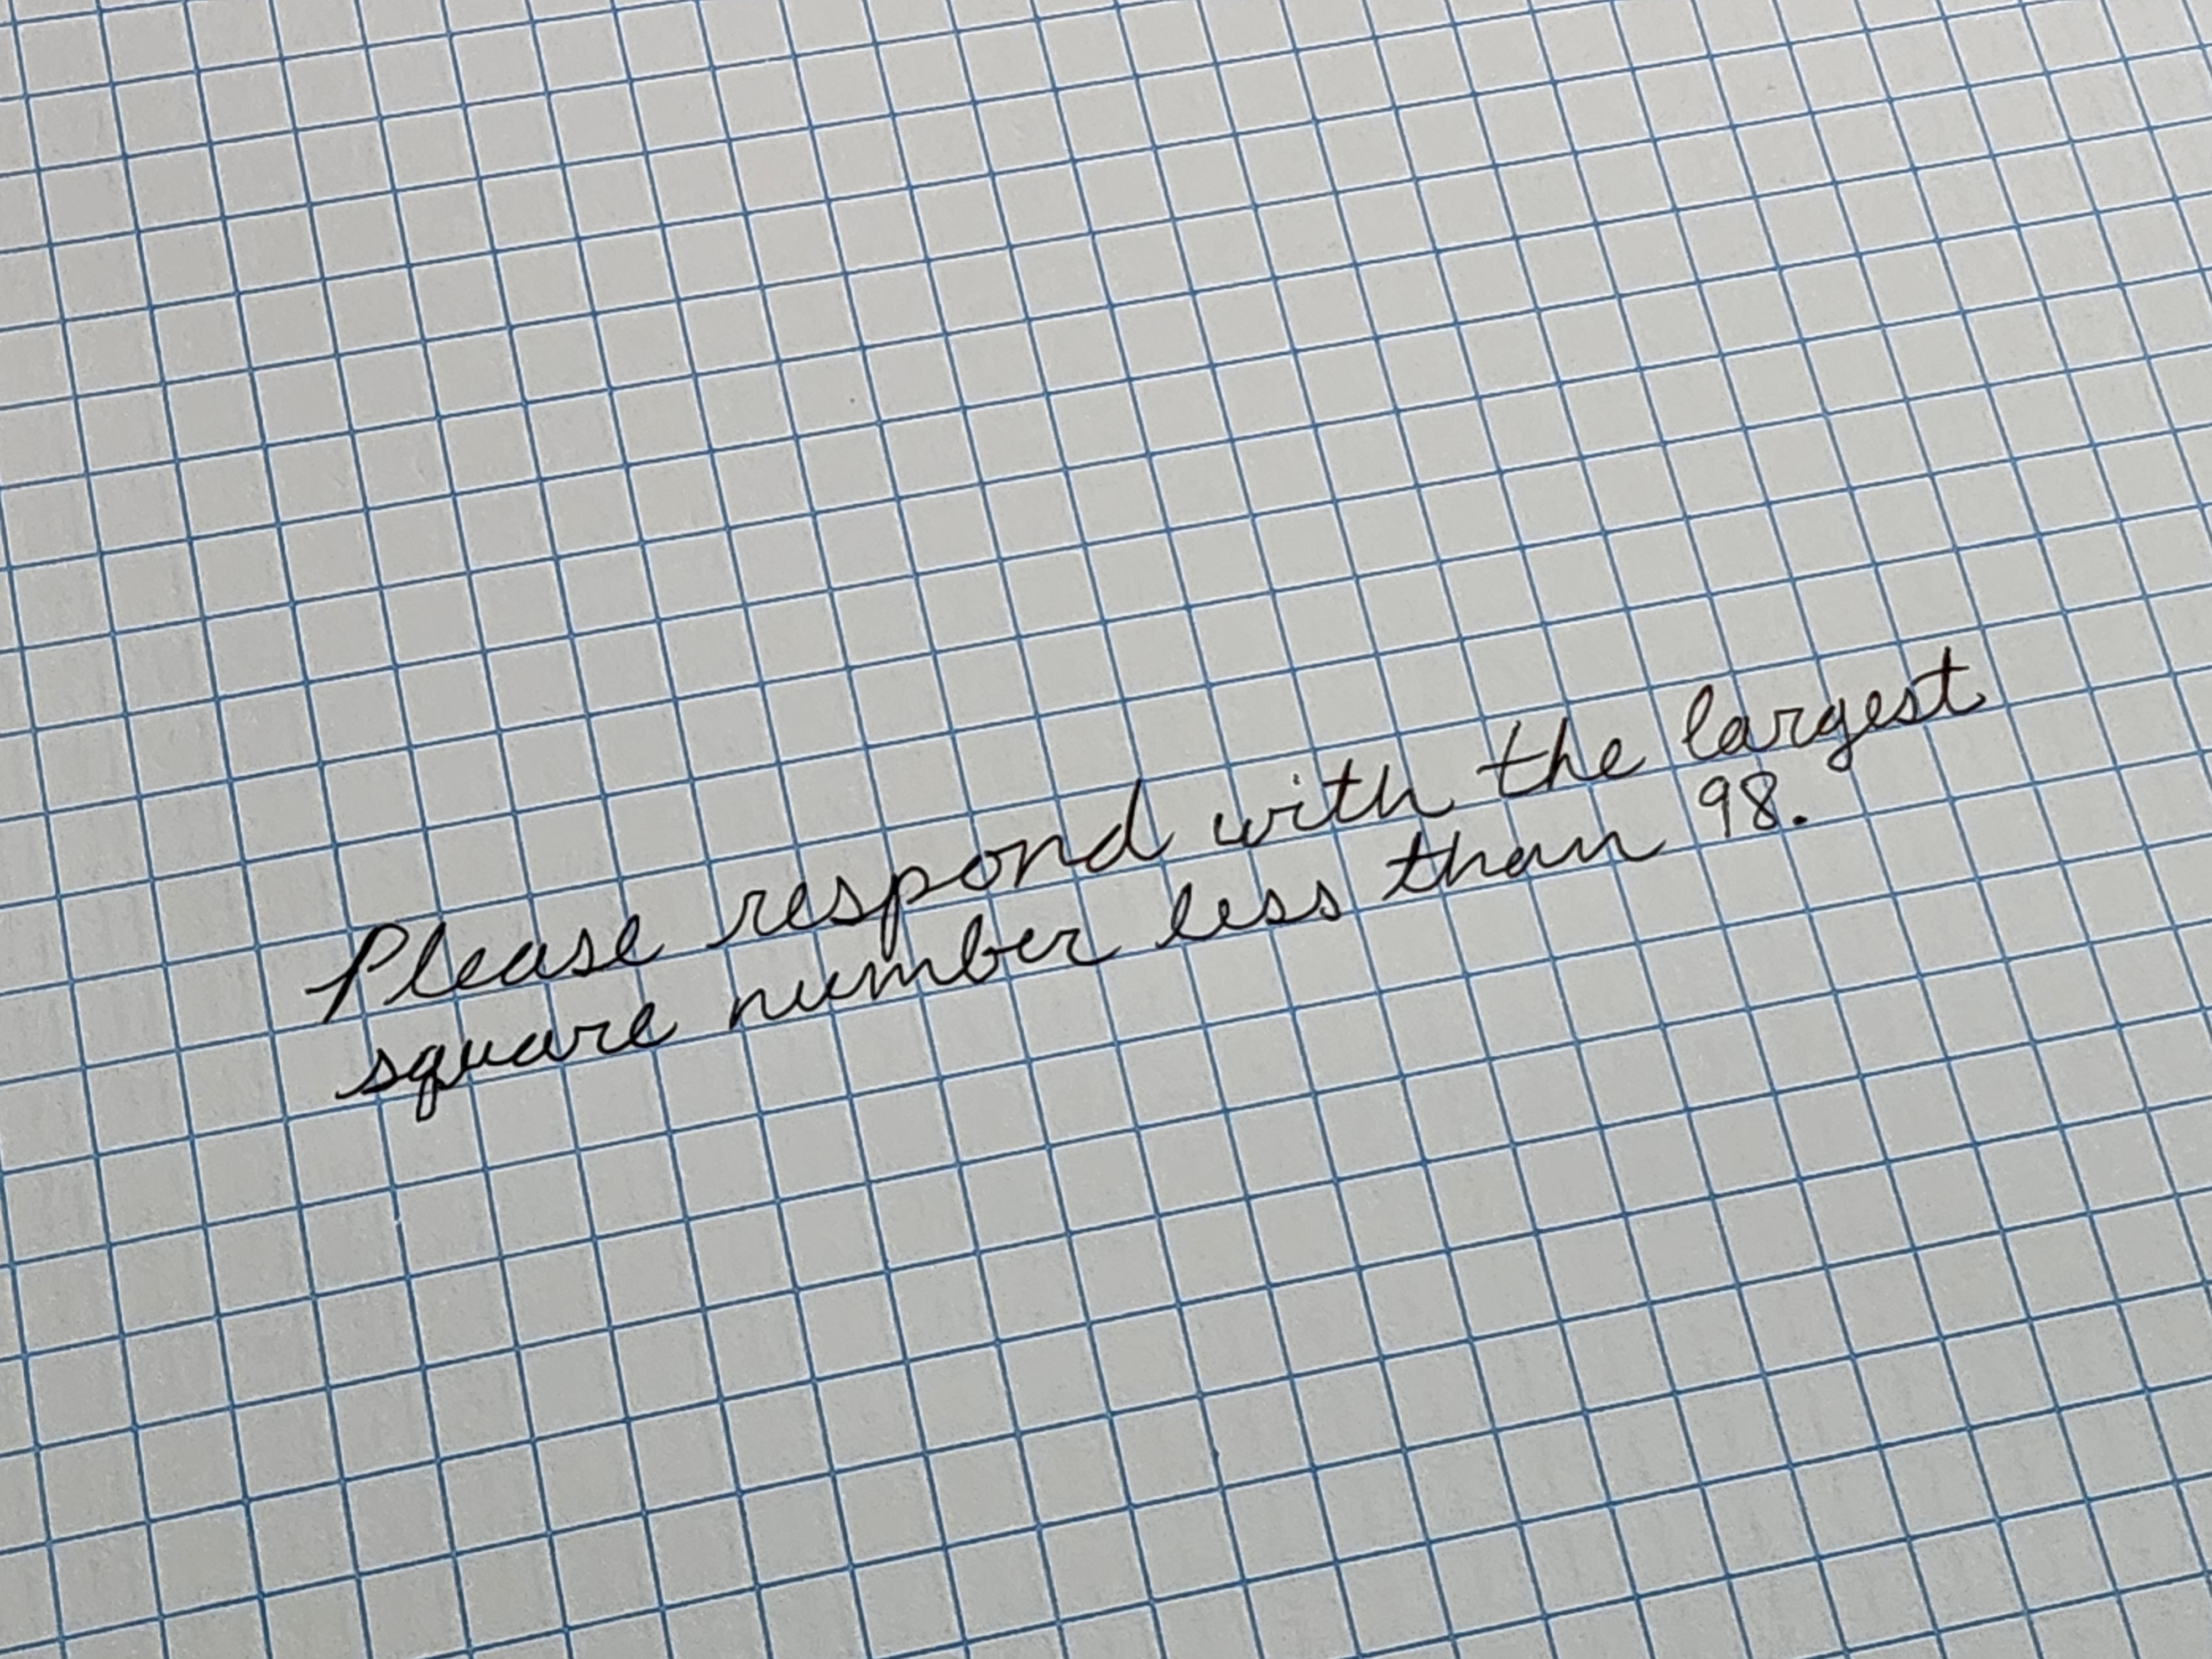 Please respond with the largest
square number less than 98.